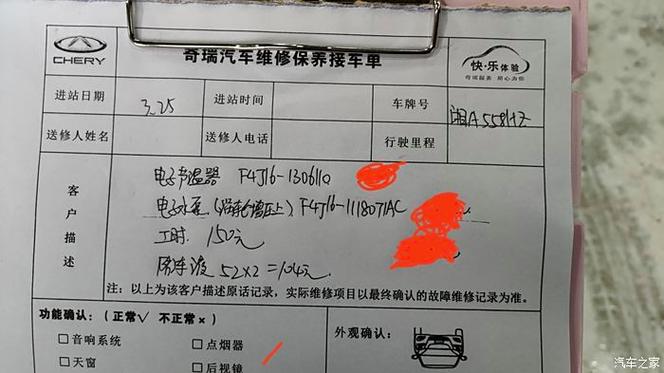 CHERY
奇瑞汽车维修保养接车单
快·乐体验
奇瑞服务 用心为你
进站日期 3.25 进站时间 车牌号 湘A558HZ
送修人姓名 送修人电话 行驶里程
客户描述
电子节温器 F4J16-1306110
电子水泵(涡轮增压上)F4J16-1118071AC
工时 150元
防冻液 52×2=104元
注:以上为该客户描述原话记录,实际维修项目以最终确认的故障维修记录为准。
功能确认:(正常√ 不正常×) 外观确认:
□音响系统 □点烟器
□天窗 □后视镜
汽车之家